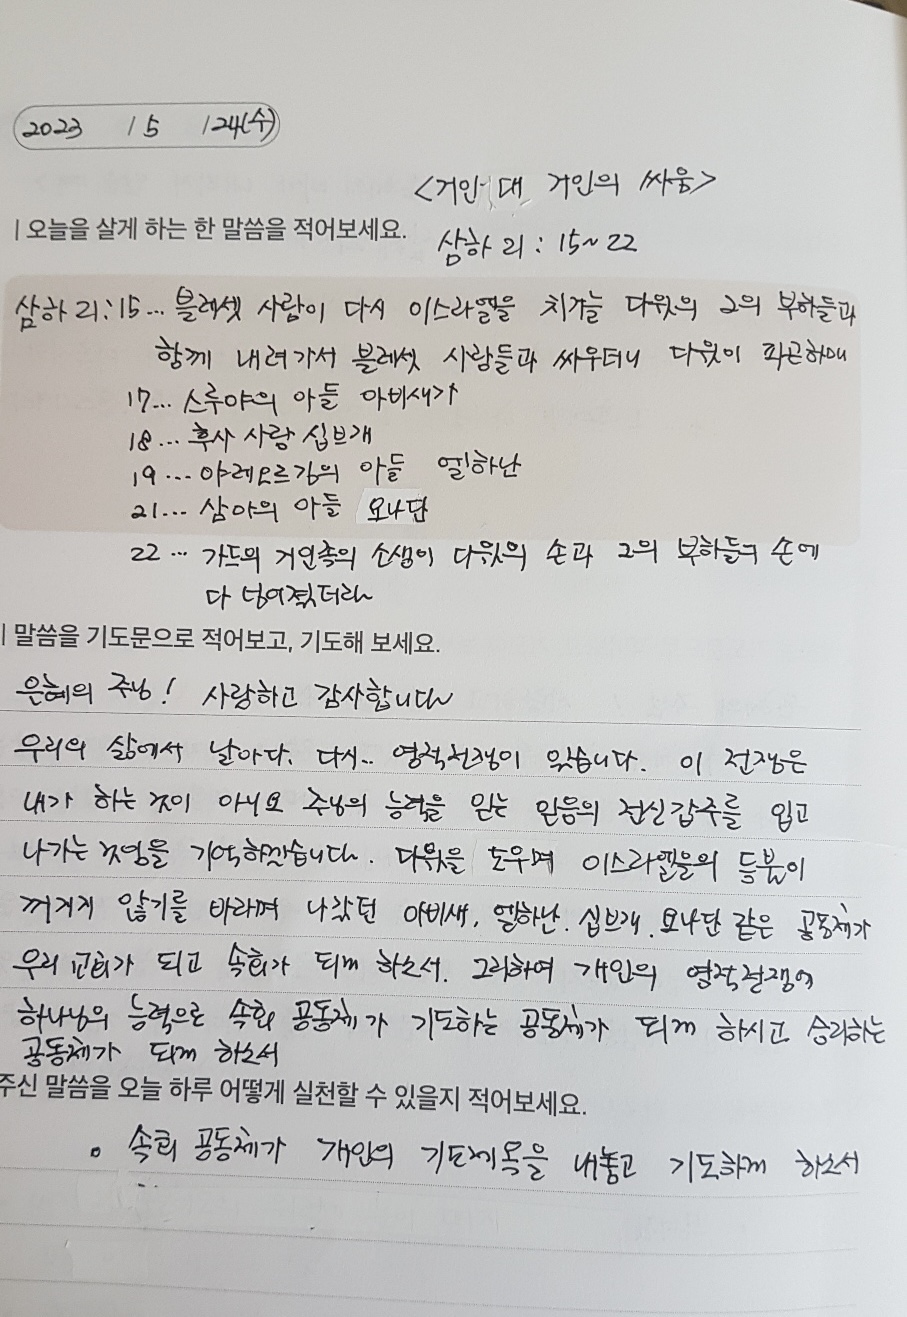 2023 / 5 / 24(수)
<거인 대 거인의 싸움>
| 오늘을 살게 하는 한 말씀을 적어보세요.
삼하 21 : 15~22
삼하 21:15... 블레셋 사람이 다시 이스라엘을 치거늘 다윗의 그의 부하들과
함께 내려가서 블레셋 사람들과 싸우더니 다윗이 피곤하매
17... 스루야의 아들 아비새가
18... 후사 사람 십브개
19... 야레오르김의 아들 엘하난
21... 삼아의 아들 요나단
22... 가드의 거인족의 소생이 다윗의 손과 그의 부하들의 손에
다 넘어졌더라
| 말씀을 기도문으로 적어보고, 기도해 보세요.
은혜의 주님! 사랑하고 감사합니다
우리의 삶에서 날마다. 다시.. 영적전쟁이 있습니다. 이 전쟁은
내가 하는 것이 아니요 주님의 능력을 믿는 믿음의 전신갑주를 입고
나가는 것임을 기억하겠습니다. 다윗을 도우며 이스라엘의 등불이
꺼지지 않기를 바라며 나섰던 아비새, 엘하난. 십브개. 요나단 같은 공동체가
우리 교회가 되고 속회가 되게 하소서. 그리하여 개인의 영적전쟁에
하나님의 능력으로 속회 공동체가 기도하는 공동체가 되게 하시고 승리하는
공동체가 되게 하소서
주신 말씀을 오늘 하루 어떻게 실천할 수 있을지 적어보세요.
• 속회 공동체가 개인의 기도제목을 내놓고 기도하게 하소서